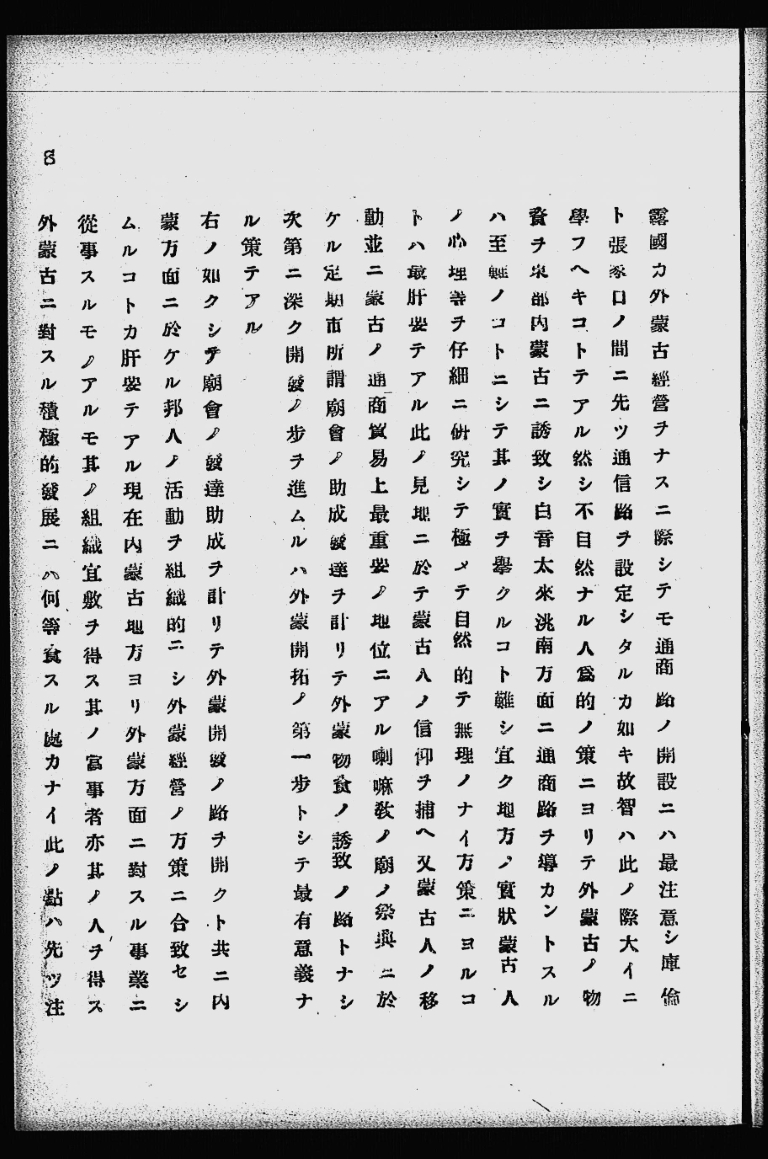 露國カ外蒙古經營ヲナスニ際シテモ通商路ノ開設ニハ最注意シ庫倫
ト張家口ノ間ニ先ツ通信路ヲ設定シタルカ如キ故智ハ此ノ際大イニ
學フヘキコトテアル然シ不自然ナル人爲的ノ策ニヨリテ外蒙古ノ物
資ヲ東部内蒙古ニ誘致シ白音太來洮南方面ニ通商路ヲ導カントスル
ハ至難ノコトニシテ其ノ實ヲ擧クルコト難シ宜ク地方ノ實狀蒙古人
ノ心理等ヲ仔細ニ硏究シテ極メテ自然的テ無理ノナイ方策ニヨルコ
トハ最肝要テアル此ノ見地ニ於テ蒙古人ノ信仰ヲ捕ヘ又蒙古人ノ移
動並ニ蒙古ノ通商貿易上最重要ノ地位ニアル喇嘛敎ノ廟ノ祭典ニ於
ケル定期市所謂廟會ノ助成發達ヲ計リテ外蒙物資ノ誘致ノ路トナシ
次第ニ深ク開發ノ步ヲ進ムルハ外蒙開拓ノ第一步トシテ最有意義ナ
ル策テアル
右ノ如クシテ廟會ノ發達助成ヲ計リテ外蒙開發ノ路ヲ開クト共ニ内
蒙方面ニ於ケル邦人ノ活動ヲ組織的ニシ外蒙經營ノ方策ニ合致セシ
ムルコトカ肝要テアル現在内蒙古地方ヨリ外蒙方面ニ對スル事業ニ
從事スルモノアルモ其ノ組織宜敷ヲ得ス其ノ當事者亦其ノ人ヲ得ス
外蒙古ニ對スル積極的發展ニハ何等資スル處カナイ此ノ點ハ先ツ注
8